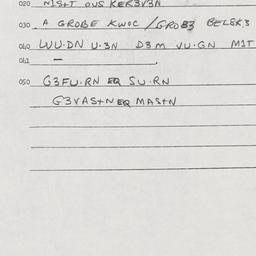 020 N1S+T OUS KER3V3N
030 A GROBE KWOC / GROB3 BELSK3
040 WU·DN U·3N D3M VU·GN M1T
041 —
050 G3FU·RN EQ SU·RN
G3VAS+N EQ MAS+N